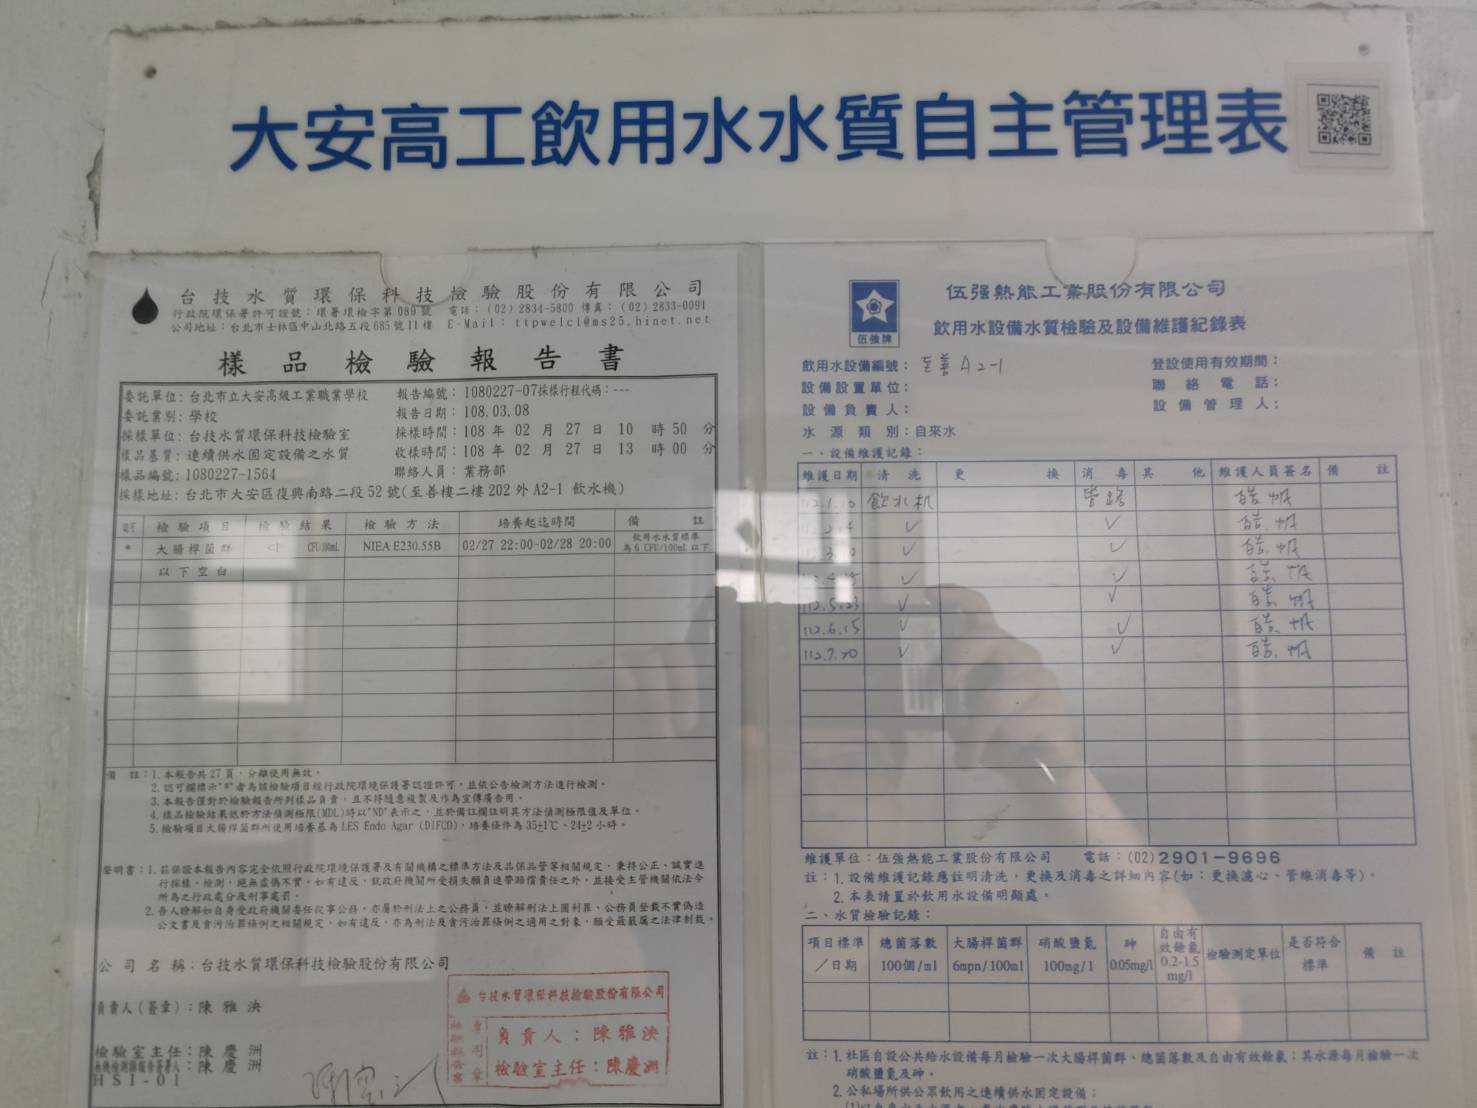 大安高工飲用水水質自主管理表
台技水質環保科技檢驗股份有限公司
行政院環保署許可證號：環署環檢字第089號 電話：(02)2834-5800 傳真：(02)2833-0091
公司地址：台北市士林區中山北路五段685號11樓 E-Mail：ttpwelcl@ms25.hinet.net
樣品檢驗報告書
委託單位：台北市立大安高級工業職業學校 報告編號：1080227-07 採樣行程代碼：---
委託業別：學校 報告日期：108.03.08
採樣單位：台技水質環保科技檢驗室 採樣時間：108 年 02 月 27 日 10 時 50 分
樣品基質：連續供水固定設備之水質 收樣時間：108 年 02 月 27 日 13 時 00 分
樣品編號：1080227-1564 聯絡人員：業務部
採樣地址：台北市大安區復興南路二段52號(至善樓二樓202外A2-1 飲水機)
檢驗項目 檢驗結果 檢驗方法 培養起迄時間 備註
* 大腸桿菌群 <1 CFU/100mL NIEA E230.55B 02/27 22:00-02/28 20:00 飲用水水質標準為6 CFU/100mL以下
以下空白
備註：1.本報告共27頁，分離使用無效。
2.認可欄標示"*"者為該檢驗項目經行政院環境保護署認證許可，並依公告檢測方法進行檢測。
3.本報告僅對於檢驗報告所列樣品負責，且不得隨意複製及作為宣傳廣告用。
4.樣品檢驗結果低於方法偵測極限(MDL)時以"ND"表示之，並於備註欄註明其方法偵測極限值及單位。
5.檢驗項目大腸桿菌群所使用培養基為LES Endo Agar (DIFCO)，培養條件為35±1℃、24±2小時。
聲明書：1.茲保證本報告內容完全依照行政院環境保護署及有關機構之標準方法及品保品管等相關規定，秉持公正、誠實進
行採樣、檢測，絕無虛偽不實，如有違反，就政府機關所受損失願負連帶賠償責任之外，並接受主管機關依法令
所為之行政處分及刑事處罰。
2.吾人瞭解如自身受政府機關委任從事公務，亦屬於刑法上之公務員，並瞭解刑法上圖利罪、公務員登載不實偽造
公文書及貪污治罪條例之相關規定，如有違反，亦為刑法及貪污治罪條例之適用之對象，願受最嚴厲之法律制裁。
公司名稱：台技水質環保科技檢驗股份有限公司
負責人(簽章)：陳雅泱
檢驗室主任：陳慶洲
陳慶洲
HSI-01
台技水質環保科技檢驗股份有限公司
負責人：陳雅泱
檢驗室主任：陳慶洲
伍强牌
伍强熱能工業股份有限公司
飲用水設備水質檢驗及設備維護紀錄表
飲用水設備編號：至善A2-1 登設使用有效期間：
設備設置單位： 聯絡電話：
設備負責人： 設備管理人：
水源類別：自來水
一、設備維護記錄：
維護日期 清洗 更換 消毒 其他 維護人員簽名 備註
112.1.10 飲水机 管路
✓ ✓
✓ ✓
✓ ✓
112.5.23 ✓ ✓
112.6.15 ✓ ✓
112.7.20 ✓ ✓
維護單位：伍强熱能工業股份有限公司 電話：(02)2901-9696
註：1.設備維護記錄應註明清洗，更換及消毒之詳細內容(如：更換濾心、管線消毒等)。
2.本表請置於飲用水設備明顯處。
二、水質檢驗記錄：
項目標準／日期 總菌落數 100個/ml 大腸桿菌群 6mpn/100ml 硝酸鹽氮 100mg/l 砷 0.05mg/l 自由有效餘氯 0.2-1.5 mg/l 檢驗測定單位 是否符合標準 備註
註：1.社區自設公共給水設備每月檢驗一次大腸桿菌群、總菌落數及自由有效餘氯；其水源每月檢驗一次
硝酸鹽氮及砷。
2.公私場所供公眾飲用之連續供水固定設備：